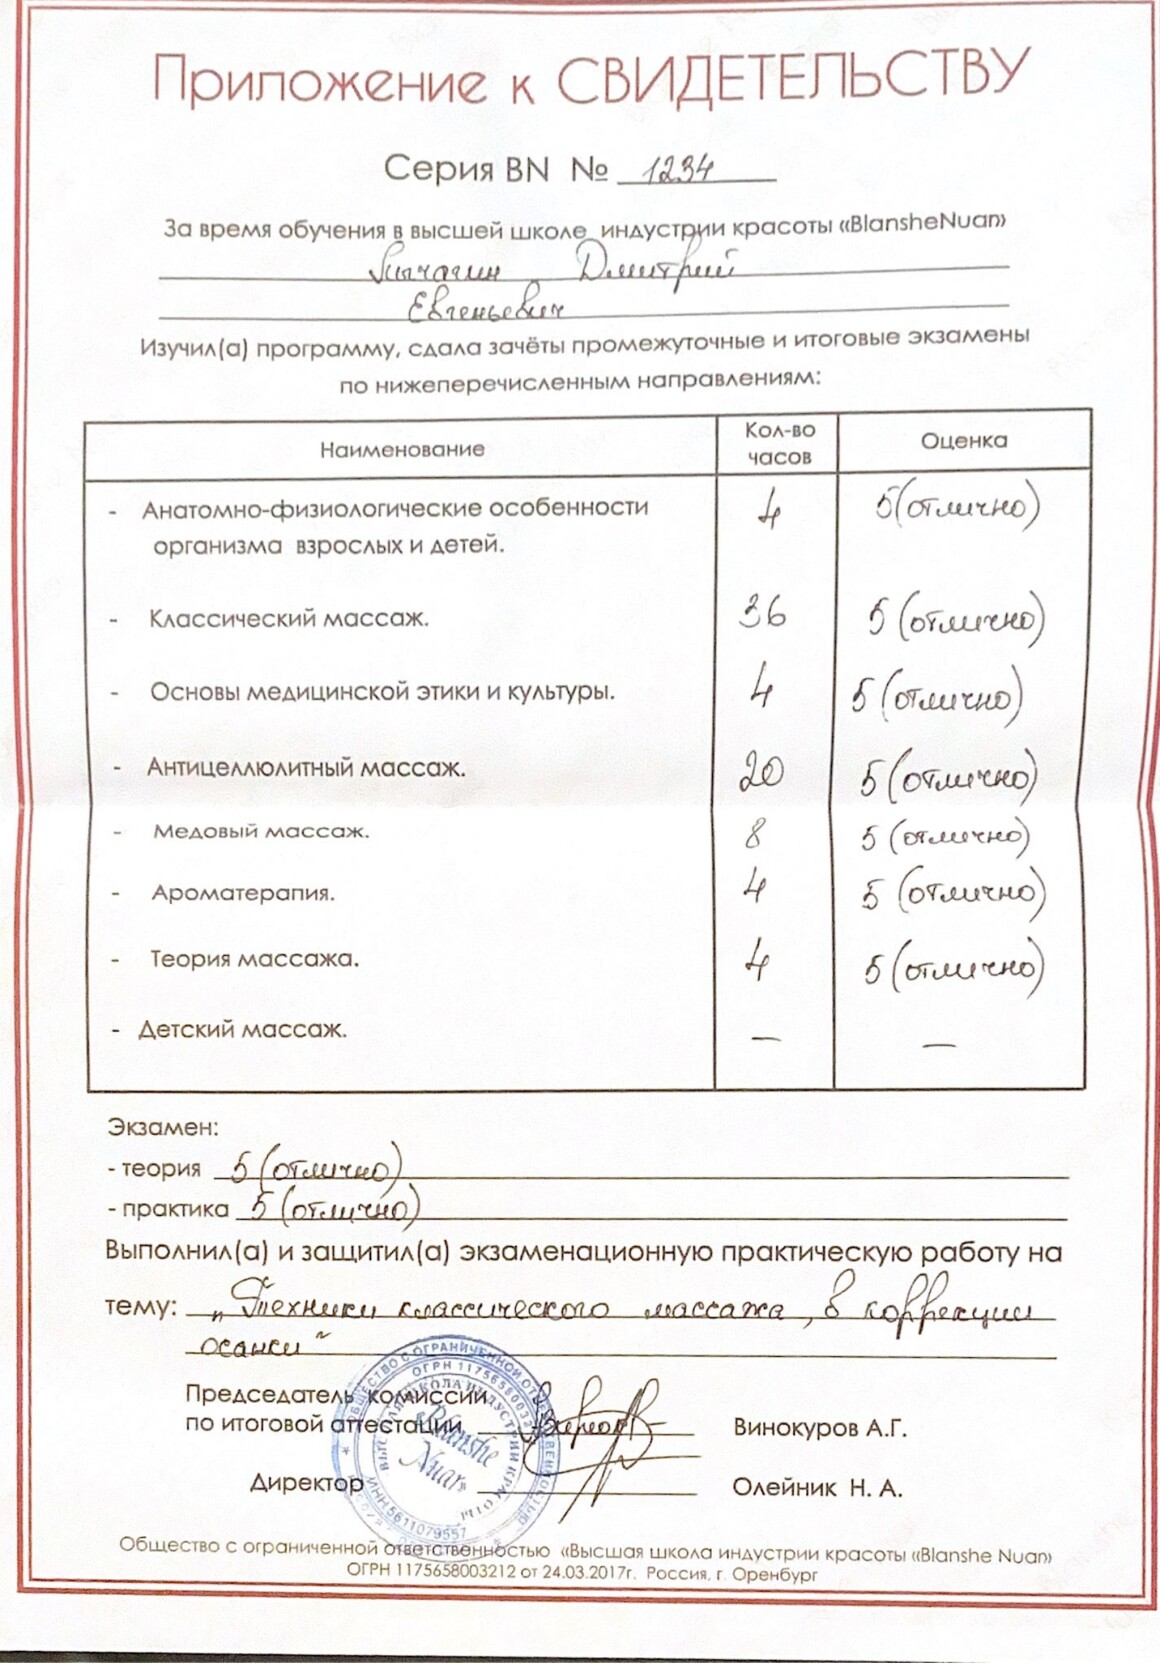 Приложение к СВИДЕТЕЛЬСТВУ
Серия BN № 1234
За время обучения в высшей школе индустрии красоты «BlansheNuan»
Дмитрий
Евгеньевич
Изучил(а) программу, сдала зачёты промежуточные и итоговые экзамены
по нижеперечисленным направлениям:
Наименование Кол-во часов Оценка
- Анатомно-физиологические особенности 4 5 (отлично)
организма взрослых и детей.
- Классический массаж. 36 5 (отлично)
- Основы медицинской этики и культуры. 4 5 (отлично)
- Антицеллюлитный массаж. 20 5 (отлично)
- Медовый массаж. 8 5 (отлично)
- Ароматерапия. 4 5 (отлично)
- Теория массажа. 4 5 (отлично)
- Детский массаж. — —
Экзамен:
- теория 5 (отлично)
- практика 5 (отлично)
Выполнил(а) и защитил(а) экзаменационную практическую работу на
тему: „Техники классического массажа, в коррекции
осанки“
Председатель комиссии
по итоговой аттестации Винокуров А.Г.
Директор Олейник Н. А.
ОБЩЕСТВО С ОГРАНИЧЕННОЙ ОТВЕТСТВЕННОСТЬЮ
ВЫСШАЯ ШКОЛА ИНДУСТРИИ КРАСОТЫ
«Blanshe
Nuan»
ИНН 5611079557
Общество с ограниченной ответственностью «Высшая школа индустрии красоты «Blanshe Nuan»
ОГРН 1175658003212 от 24.03.2017г. Россия, г. Оренбург